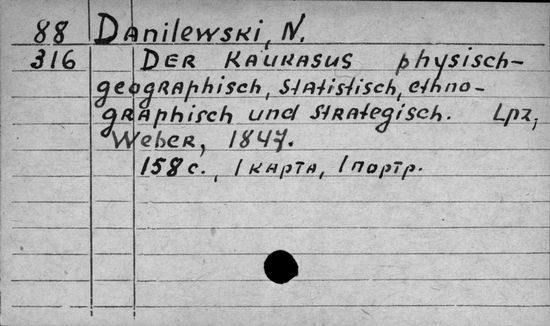 88 Danilewski, N.
316 Der Kaukasus physisch-
geographisch, statistisch, ethno-
graphisch und strategisch. Lpz,
Weber, 1847.
158 с., 1 карта, 1 портр.